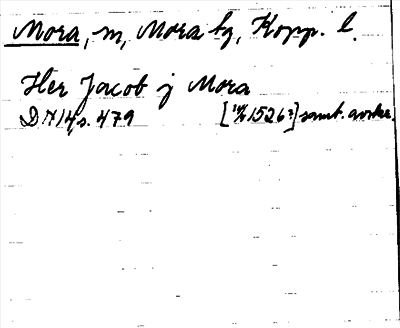 Mora, m, Mora by, Kopp. l.
Her Jacob j Mora
DN 14, s. 479 [1526?] samt. avskr.